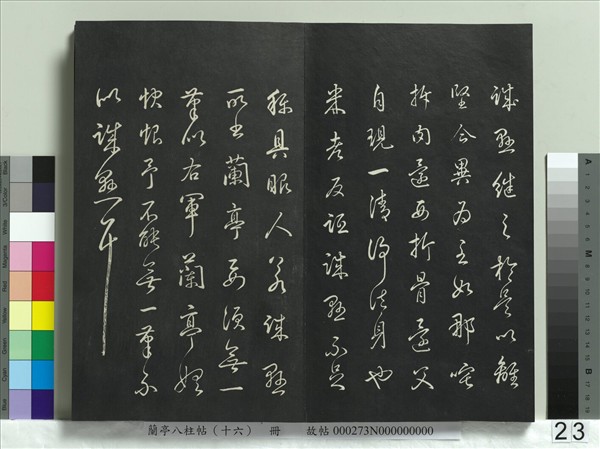 誠懸繼之於是以離
堅合異為主如那吒
拆肉還母折骨還父
自現一清淨法身也
米老反詆誠懸不足
稱具眼人若誠懸
所書蘭亭要須無一
筆似右軍蘭亭始
快恨予不能無一筆不
似誠懸耳
蘭亭八柱帖（十六） 冊 故帖000273N000000000
23